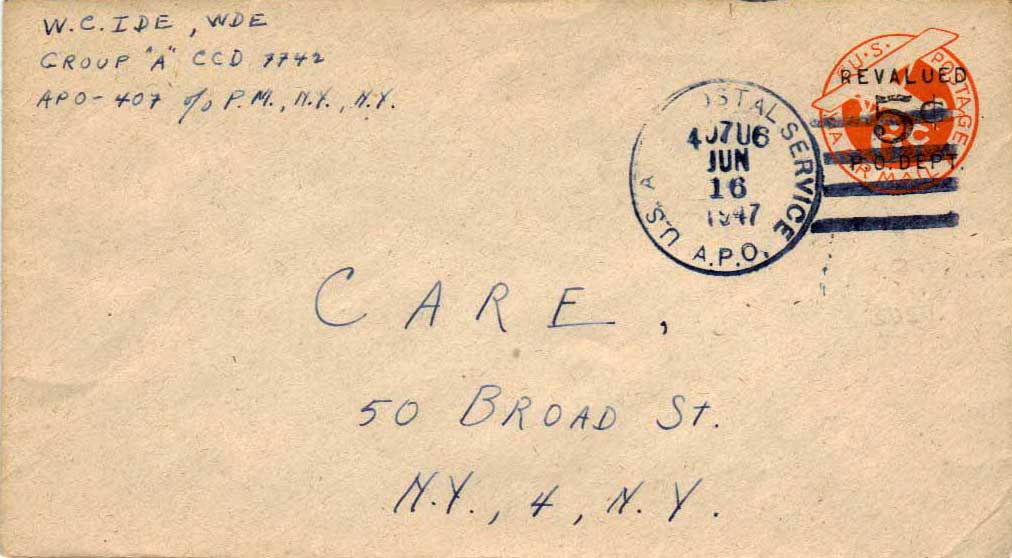 W.C. IDE, WDE
GROUP "A" CCD 7742
APO-407 c/o P.M., N.Y., N.Y.
U.S. POSTAGE
VIA AIR MAIL
REVALUED
5¢
P.O. DEPT.
U.S.A. POSTAL SERVICE
JUN
16
1947
A.P.O.
CARE,
50 BROAD St.
N.Y., 4, N.Y.